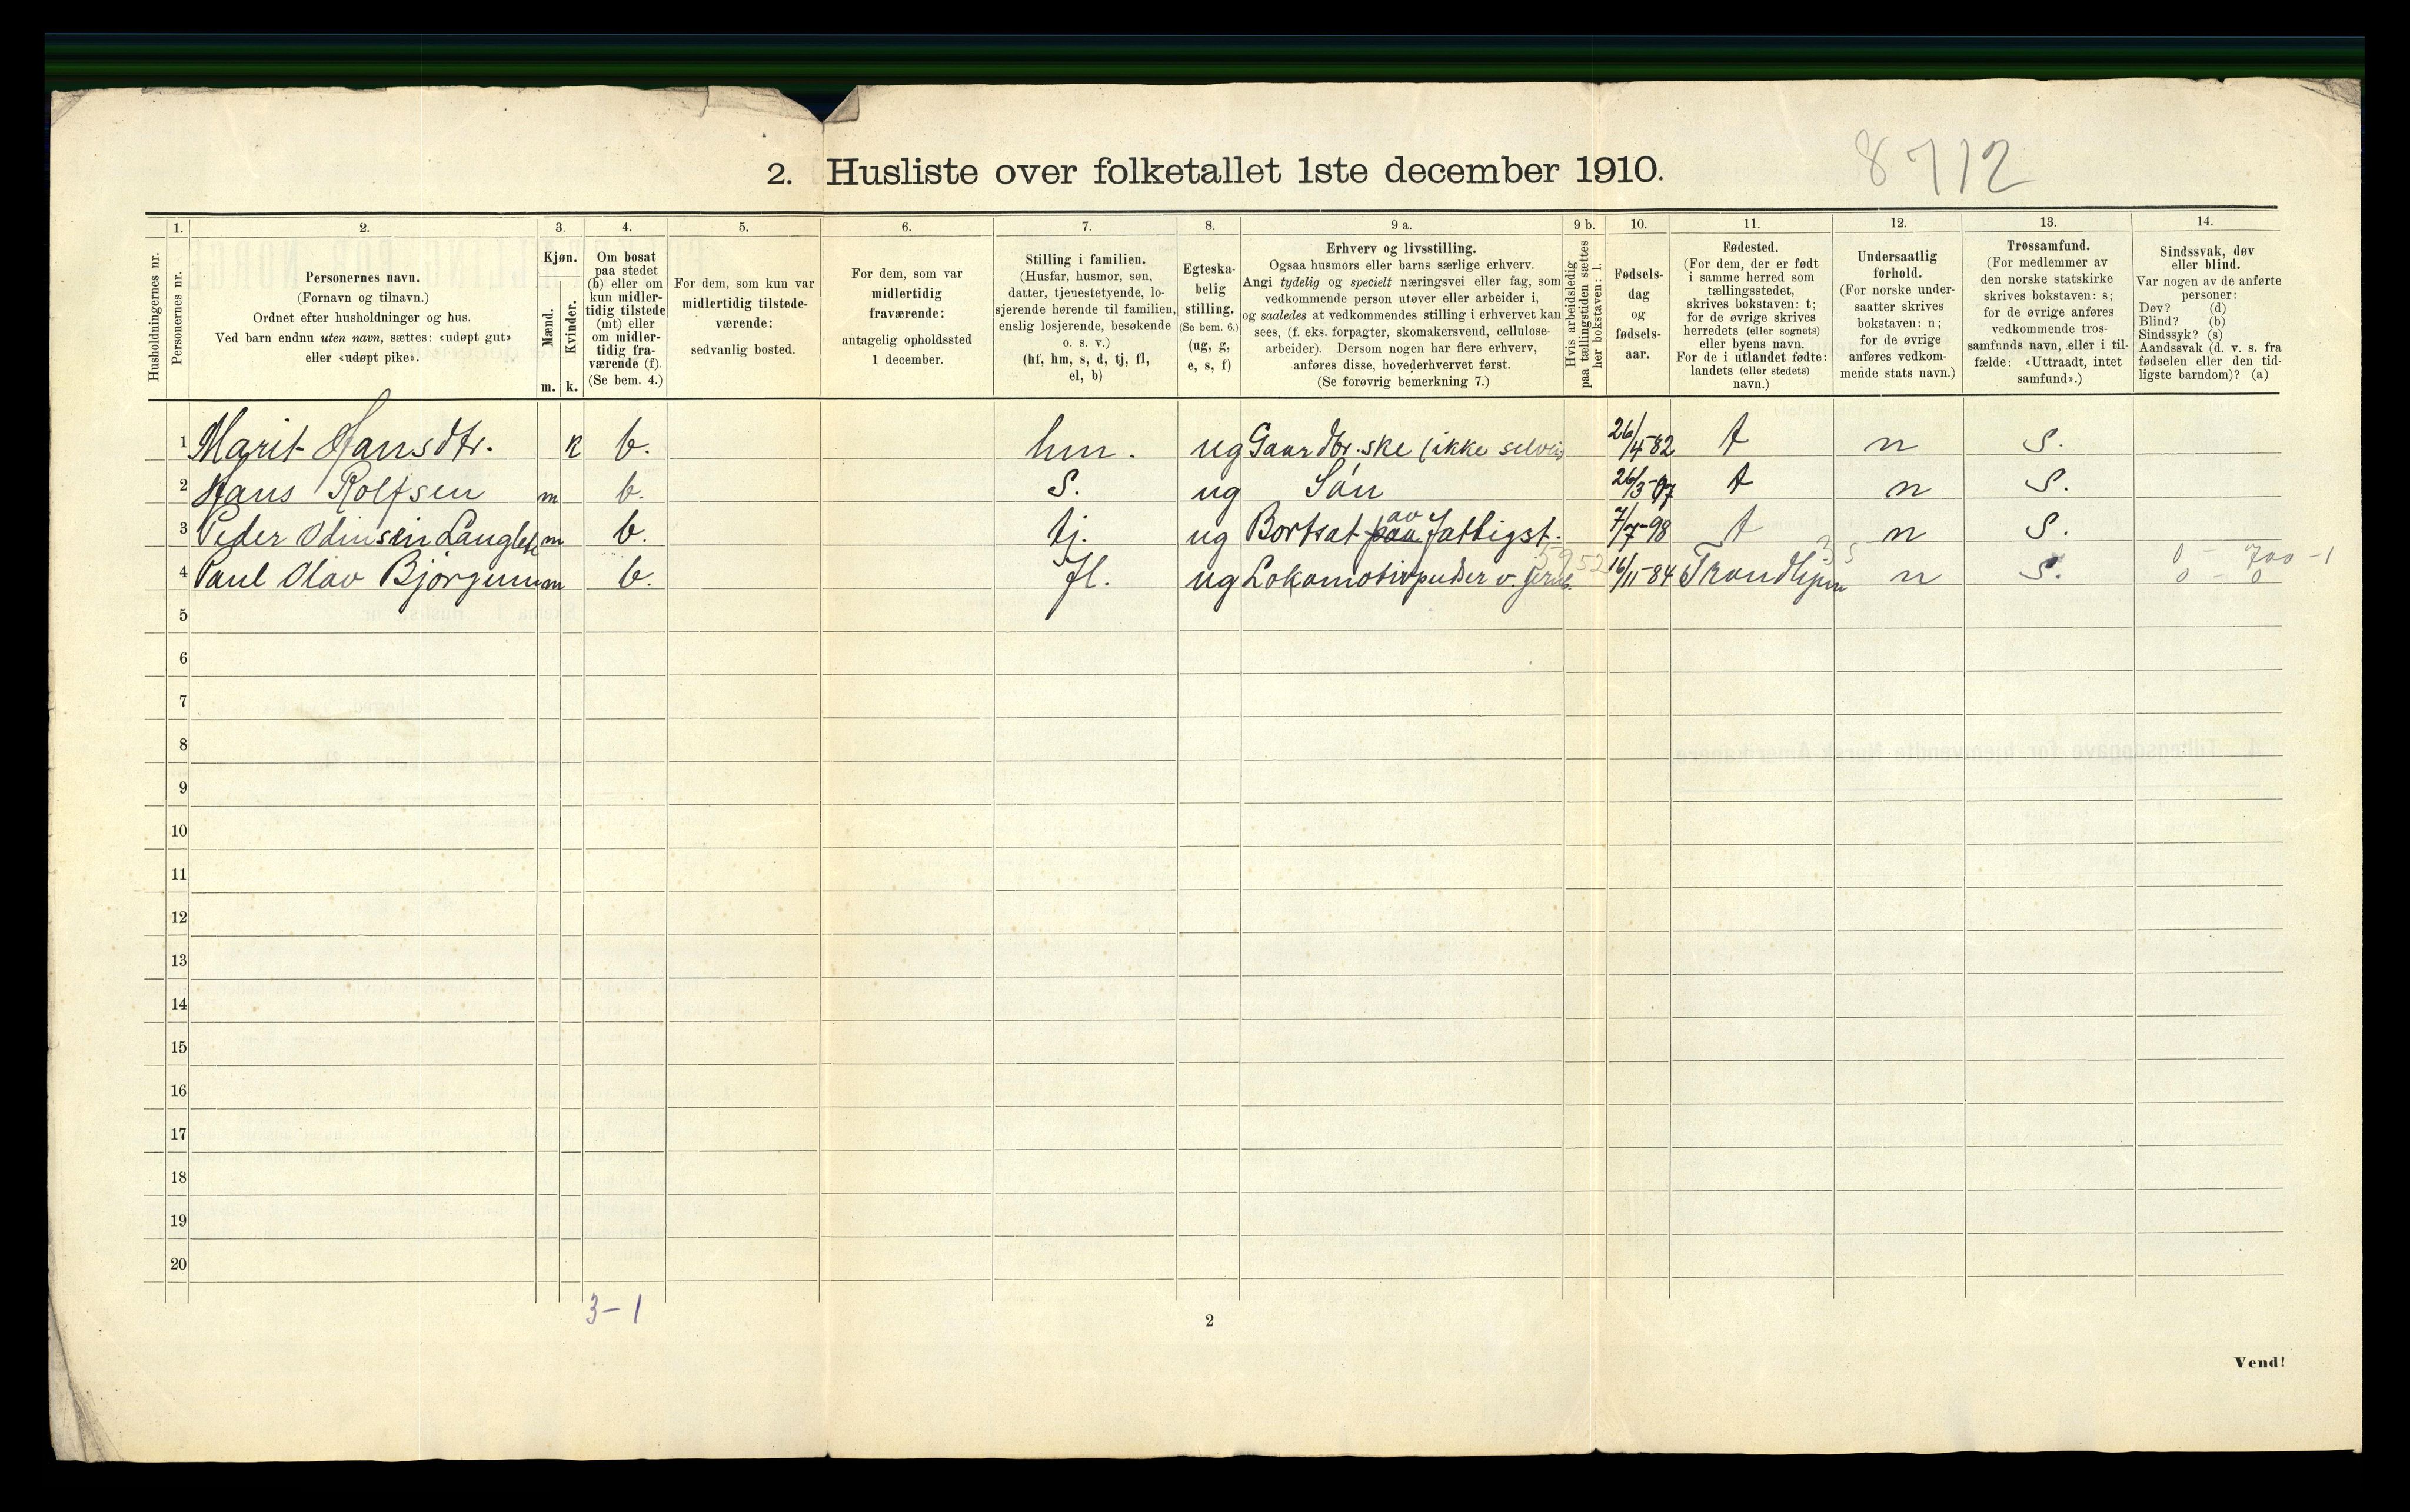 8712
2. Husliste over folketallet 1ste december 1910.
Husholdningernes nr.
1.
Personernes nr.
2.
Personernes navn.
(Fornavn og tilnavn.)
Ordnet efter husholdninger og hus.
Ved barn endnu uten navn, sættes: «udøpt gut»
eller «udøpt pike».
3.
Kjøn.
Mænd.
Kvinder.
m. k.
4.
Om bosat
paa stedet
(b) eller om
kun midler-
tidig tilstede
(mt) eller
om midler-
tidig fra-
værende (f).
(Se bem. 4.)
5.
For dem, som kun var
midlertidig tilstede-
værende:
sedvanlig bosted.
6.
For dem, som var
midlertidig
fraværende:
antagelig opholdssted
1 december.
7.
Stilling i familien.
(Husfar, husmor, søn,
datter, tjenestetyende, lo-
sjerende hørende til familien,
enslig losjerende, besøkende
o. s. v.)
(hf, hm, s, d, tj, fl,
el, b)
8.
Egteska-
belig
stilling.
(Se bem. 6.)
(ug, g,
e, s, f)
9 a.
Erhverv og livsstilling.
Ogsaa husmors eller barns særlige erhverv.
Angi tydelig og specielt næringsvei eller fag, som
vedkommende person utøver eller arbeider i,
og saaledes at vedkommendes stilling i erhvervet kan
sees, (f. eks. forpagter, skomakersvend, cellulose-
arbeider). Dersom nogen har flere erhverv,
anføres disse, hovederhvervet først.
(Se forøvrig bemerkning 7.)
9 b.
Hvis arbeidsledig
paa tællingstiden sættes
her bokstaven: l.
10.
Fødsels-
dag
og
fødsels-
aar.
11.
Fødested.
(For dem, der er født
i samme herred som
tællingsstedet,
skrives bokstaven: t;
for de øvrige skrives
herredets (eller sognets)
eller byens navn.
For de i utlandet fødte:
landets (eller stedets)
navn.)
12.
Undersaatlig
forhold.
(For norske under-
saatter skrives
bokstaven: n;
for de øvrige
anføres vedkom-
mende stats navn.)
13.
Trossamfund.
(For medlemmer av
den norske statskirke
skrives bokstaven: s;
for de øvrige anføres
vedkommende tros-
samfunds navn, eller i til-
fælde: «Uttraadt, intet
samfund».)
14.
Sindssvak, døv
eller blind.
Var nogen av de anførte
personer:
Døv? (d)
Blind? (b)
Sindssyk? (s)
Aandssvak (d. v. s. fra
fødselen eller den tid-
ligste barndom)? (a)
1 Marit Hansdtr. k b. hm. ug Gaardbr.ske (ikke selvei 26/4-82 t n S.
2 Hans Rolfsen m b. S. ug Søn 26/3-07 t n S.
3 Peder Odinsen m b. tj. ug Bortsat paa av fattigst. 7/7-98 t n S.
5952 35 0 - 700 - 1
4 Paul Olav Bjørgum m b. fl. ug Lokomotivpudser v. Jernb. 16/11-84 Trondhjem n S. 0 - 0
5
6
7
8
9
10
11
12
13
14
15
16
17
18
19
20
3-1
2
Vend!